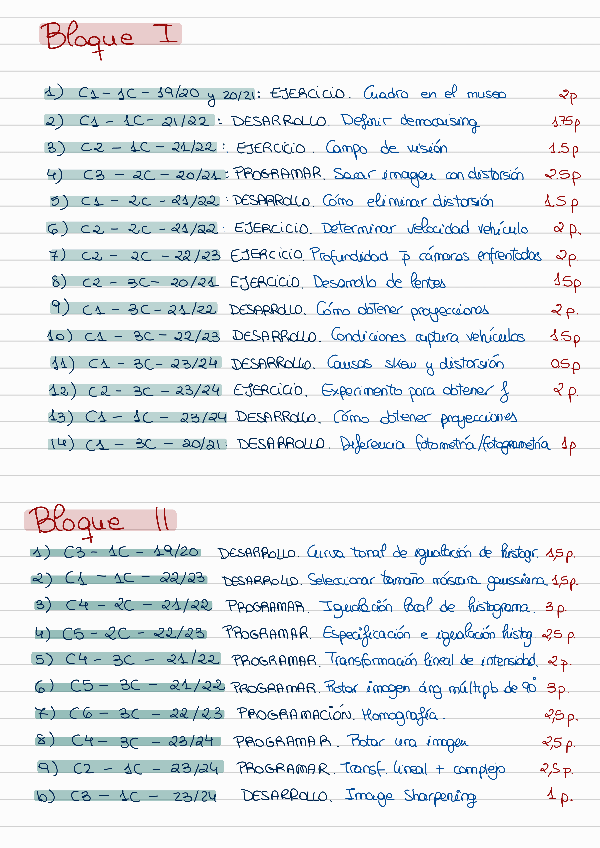 Bloque I
1) C1 - 1C - 19/20 y 20/21: EJERCICIO. Cuadro en el museo 2p
2) C1 - 1C - 21/22: DESARROLLO. Definir demosaising 1.75p
3) C2 - 1C - 21/22: EJERCICIO. Campo de visión 1.5p
4) C3 - 2C - 20/21: PROGRAMAR. Sacar imagen con distorsión 2.5p
5) C1 - 2C - 21/22: DESARROLLO. Cómo eliminar distorsión 1.5p
6) C2 - 2C - 21/22: EJERCICIO. Determinar velocidad vehículo 2p.
7) C2 - 2C - 22/23 EJERCICIO. Profundidad p cámaras enfrentadas 2p.
8) C2 - 3C - 20/21 EJERCICIO. Desarrollo de lentes 1.5p
9) C1 - 3C - 21/22 DESARROLLO. Cómo obtener proyecciones 2p.
10) C1 - 3C - 22/23 DESARROLLO. Condiciones captura vehículos 1.5p
11) C1 - 3C - 23/24 DESARROLLO. Causas skew y distorsión 0.5p
12) C2 - 3C - 23/24 EJERCICIO. Experimento para obtener f 2p.
13) C1 - 1C - 23/24 DESARROLLO. Cómo obtener proyecciones
14) C1 - 3C - 20/21 DESARROLLO. Diferencia fotometría/fotogrametría 1p
Bloque II
1) C3 - 1C - 19/20 DESARROLLO. Curva tonal de igualación de histogr. 1,5p.
2) C1 - 1C - 22/23 DESARROLLO. Seleccionar tamaño máscara gaussiana 1,5p.
3) C4 - 2C - 21/22 PROGRAMAR. Igualación local de histograma. 3p.
4) C5 - 2C - 22/23 PROGRAMAR. Especificación e igualación histog 2,5p.
5) C4 - 3C - 21/22 PROGRAMAR. Transformación lineal de intensidad. 2p.
6) C5 - 3C - 21/22 PROGRAMAR. Rotar imagen áng múltiplo de 90° 3p.
7) C6 - 3C - 22/23 PROGRAMACIÓN. Homografía. 2,5p.
8) C4 - 3C - 23/24 PROGRAMAR. Rotar una imagen 2,5p.
9) C2 - 1C - 23/24 PROGRAMAR. Transf. lineal + complejo 2,5p.
10) C3 - 1C - 23/24 DESARROLLO. Image Sharpening 1p.